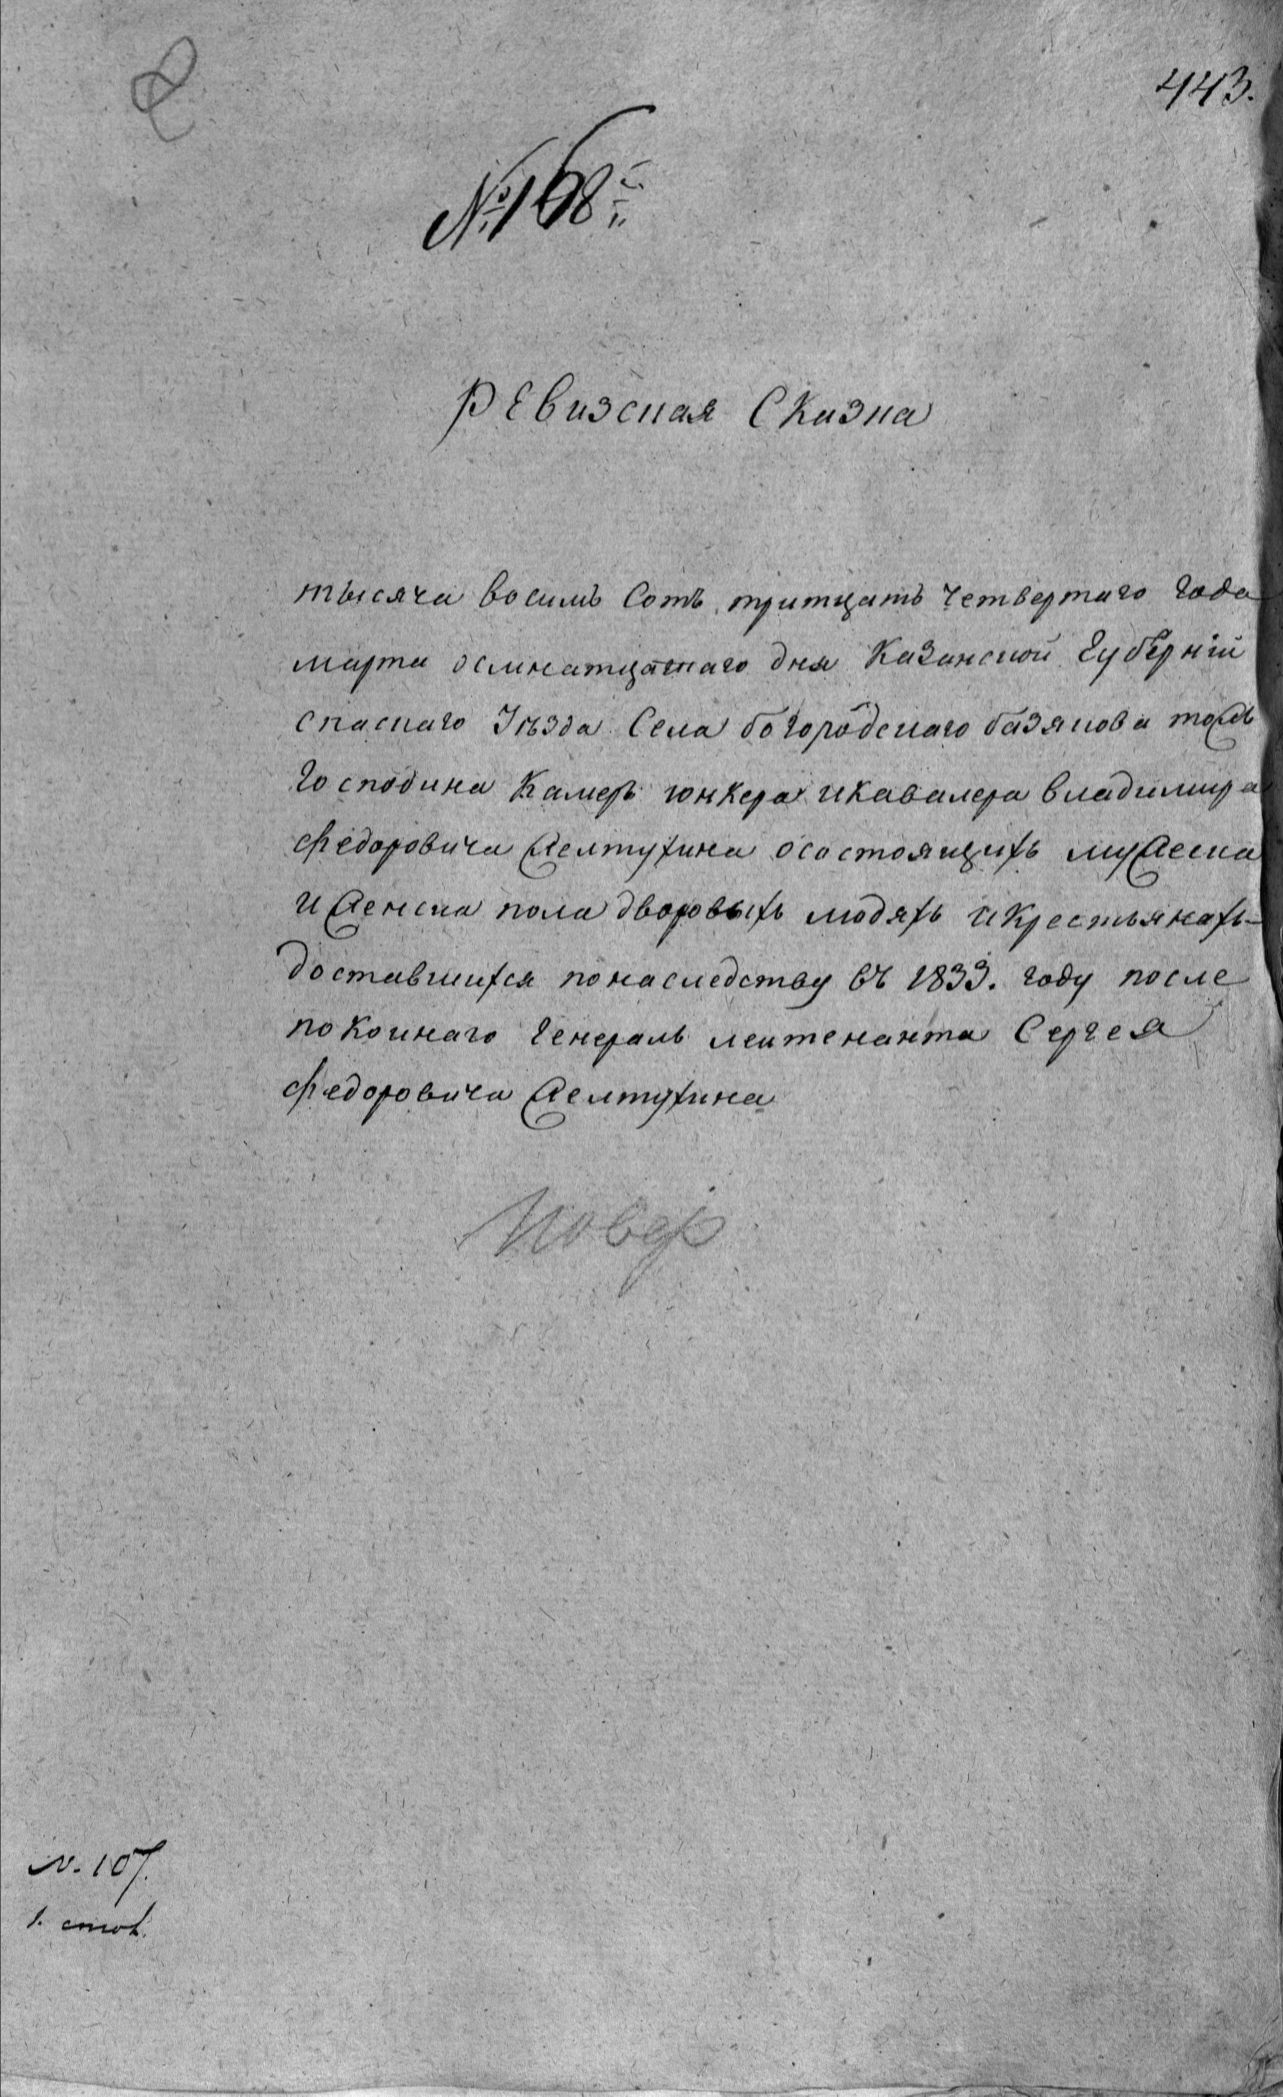 443.
№ 168
Ревизская Сказка
тысяча восимь Сотъ тритцать четвертаго года
марта осмнатцатаго дня Казанской Губерній
спаскаго Уѣзда Села богородскаго базякова тожъ
Господина Камеръ юнкера икавалера владимира
Федоровича Желтухина осостоящихъ мужеска
и женска пола дворовыхъ людяхъ икрестьянахъ
доставшихся понаследству въ 1833. году после
покоинаго Генералъ леитенанта Сергея
Федоровича Желтухина
Повер
N. 107.